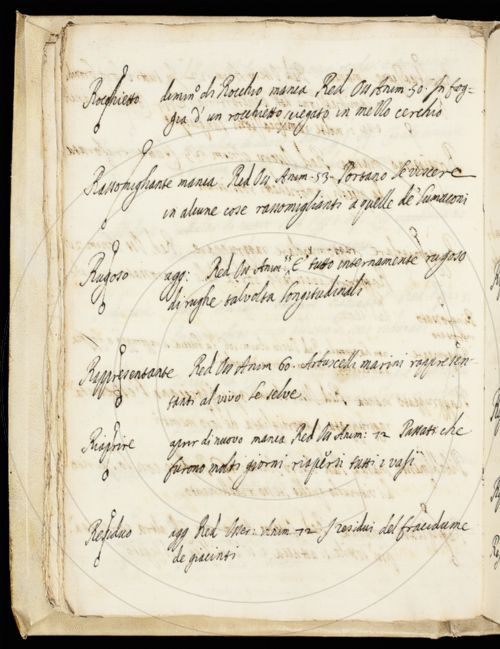 Rocchietto dimin.o di Rocchio manca Red Oss Anim. 50. In fog=
gia d'un rocchietto piegato in mezzo cerchio
Rassomigliante manca Red Oss Anim. 53. Portano le viscere
in alcune cose rassomiglianti a quelle de Lumaconi
Rugoso agg: Red Oss Anim 55 E tutto internamente rugoso
di rughe talvolta longitudinali
Rappresentante Red Oss Anim 60. Arbuscelli marini rappresen-
tanti al vivo le selve
Riaprire aprir di nuovo manca Red Oss Anim: 12 Passati che
furono molti giorni riapersi tutti i vasi
Residuo agg Red Osser: Anim 12 I residui del fracidume
de giacinti